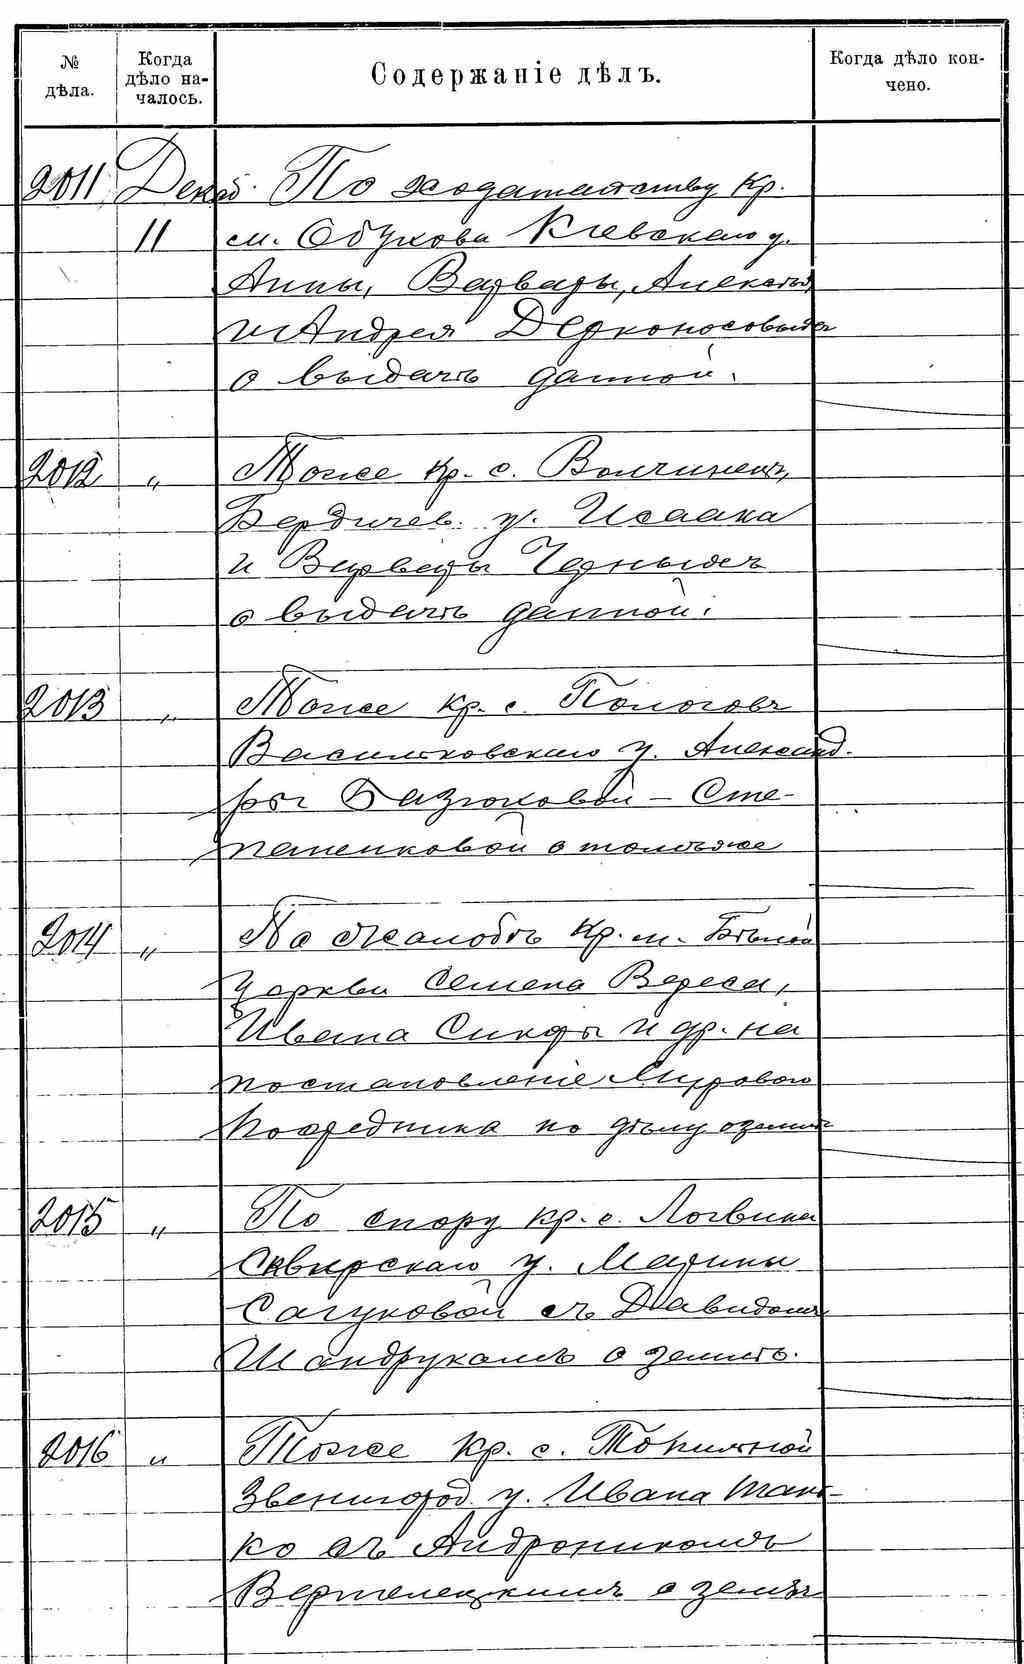 № дѣла.
Когда дѣло началось.
Содержаніе дѣлъ.
Когда дѣло кончено.
2011 Декаб. По ходатайству кр.
11 м. Обухова Кіевскаго у.
Анны, Варвары, Алексѣя
и Андрея Дерконосовыхъ
о выдачѣ данной.
2012 „ Тоже кр. с. Волчинець,
Бердичев. у. Исаака
и Варвары Черныхъ
о выдачѣ данной.
2013 „ Тоже кр. с. Пологовъ
Васильковскаго у. Александ-
ры Базюковой - Сте-
паненковой о томъ же
2014 „ По жалобѣ кр. м. Бѣлой
Церкви Семена Вереса,
Ивана Сикоры и др. на
постановленіе Мирового
Посредника по дѣлу о землѣ
2015 „ По спору кр. с. Логвина
Сквирскаго у. Марины
Сагуковой съ Давидомъ
Шандрукомъ о землѣ.
2016 „ Тоже кр. с. Топильной
Звенигород. у. Ивана
ко съ Андроникомъ
Вертелецкимъ о землѣ